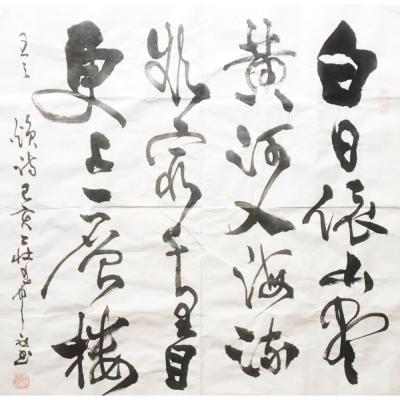 白日依山尽
黄河入海流
欲穷千里目
更上一层楼
王之
涣诗己亥